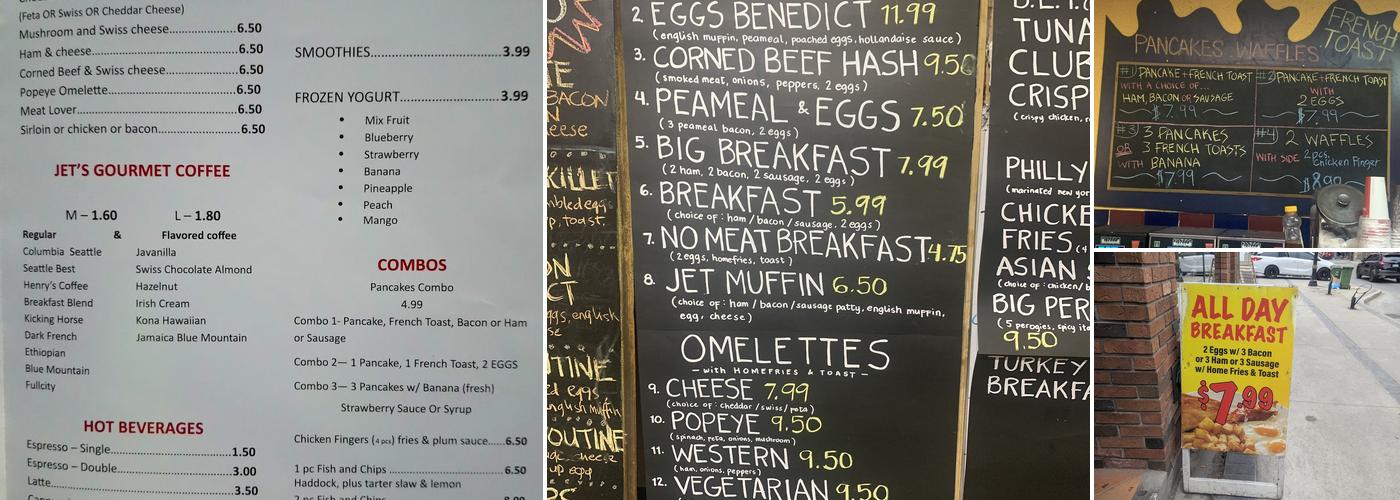 (Feta OR Swiss OR Cheddar Cheese)
Mushroom and Swiss cheese..............6.50
Ham & cheese..............6.50
Corned Beef & Swiss cheese..............6.50
Popeye Omelette..............6.50
Meat Lover..............6.50
Sirloin or chicken or bacon..............6.50
JET'S GOURMET COFFEE
M – 1.60 L – 1.80
Regular & Flavored coffee
Columbia Seattle Javanilla
Seattle Best Swiss Chocolate Almond
Henry's Coffee Hazelnut
Breakfast Blend Irish Cream
Kicking Horse Kona Hawaiian
Dark French Jamaica Blue Mountain
Ethiopian
Blue Mountain
Fullcity
HOT BEVERAGES
Espresso – Single..............1.50
Espresso – Double..............3.00
Latte..............3.50
SMOOTHIES..............3.99
FROZEN YOGURT..............3.99
• Mix Fruit
• Blueberry
• Strawberry
• Banana
• Pineapple
• Peach
• Mango
COMBOS
Pancakes Combo
4.99
Combo 1- Pancake, French Toast, Bacon or Ham
or Sausage
Combo 2— 1 Pancake, 1 French Toast, 2 EGGS
Combo 3— 3 Pancakes w/ Banana (fresh)
Strawberry Sauce Or Syrup
Chicken Fingers (4 pcs) fries & plum sauce......6.50
1 pc Fish and Chips ..............6.50
Haddock, plus tarter slaw & lemon
2 pc Fish and Chips
BACON
2. EGGS BENEDICT 11.99
(english muffin, peameal, poached eggs, hollandaise sauce)
3. CORNED BEEF HASH 9.50
(smoked meat, onions, peppers, 2 eggs)
4. PEAMEAL & EGGS 7.50
(3 peameal bacon, 2 eggs)
5. BIG BREAKFAST 7.99
(2 ham, 2 bacon, 2 sausage, 2 eggs)
6. BREAKFAST 5.99
(choice of: ham / bacon / sausage, 2 eggs)
7. NO MEAT BREAKFAST 4.75
(2 eggs, homefries, toast)
8. JET MUFFIN 6.50
(choice of: ham / bacon / sausage patty, english muffin,
egg, cheese)
OMELETTES
— with HOMEFRIES & TOAST —
9. CHEESE 7.99
(choice of: cheddar / swiss / feta)
10. POPEYE 9.50
(spinach, feta, onions, mushroom)
11. WESTERN 9.50
(ham, onions, peppers)
12. VEGETARIAN 9.50
TUNA
CLUB
CRISP
(crispy chicken,
PHILLY
(marinated new yor
CHICKE
FRIES
ASIAN
(choice of: chicken/b
BIG PER
(5 perogies, spicy ita
9.50
TURKEY
BREAKFA
PANCAKES WAFFLES
FRENCH
TOAST
#1) PANCAKE + FRENCH TOAST
WITH A CHOICE OF...
HAM, BACON OR SAUSAGE
$7.99
#2) PANCAKE + FRENCH TOAST
WITH
2 EGGS
$7.99
#3) 3 PANCAKES
OR 3 FRENCH TOASTS
WITH BANANA
$7.99
#4) 2 WAFFLES
WITH SIDE 2pcs.
Chicken Finger
ALL DAY
BREAKFAST
2 Eggs w/ 3 Bacon
or 3 Ham or 3 Sausage
w/ Home Fries & Toast
$7.99